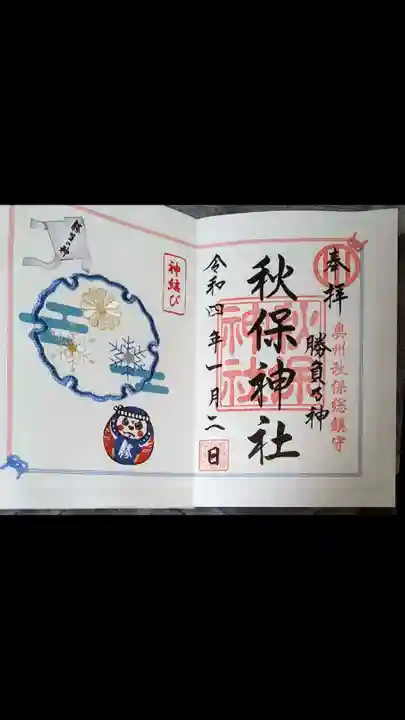 奉拝
奥州秋保総鎮守
勝負の神
秋保神社
秋保
神社
令和四年一月二日
神結び
勝